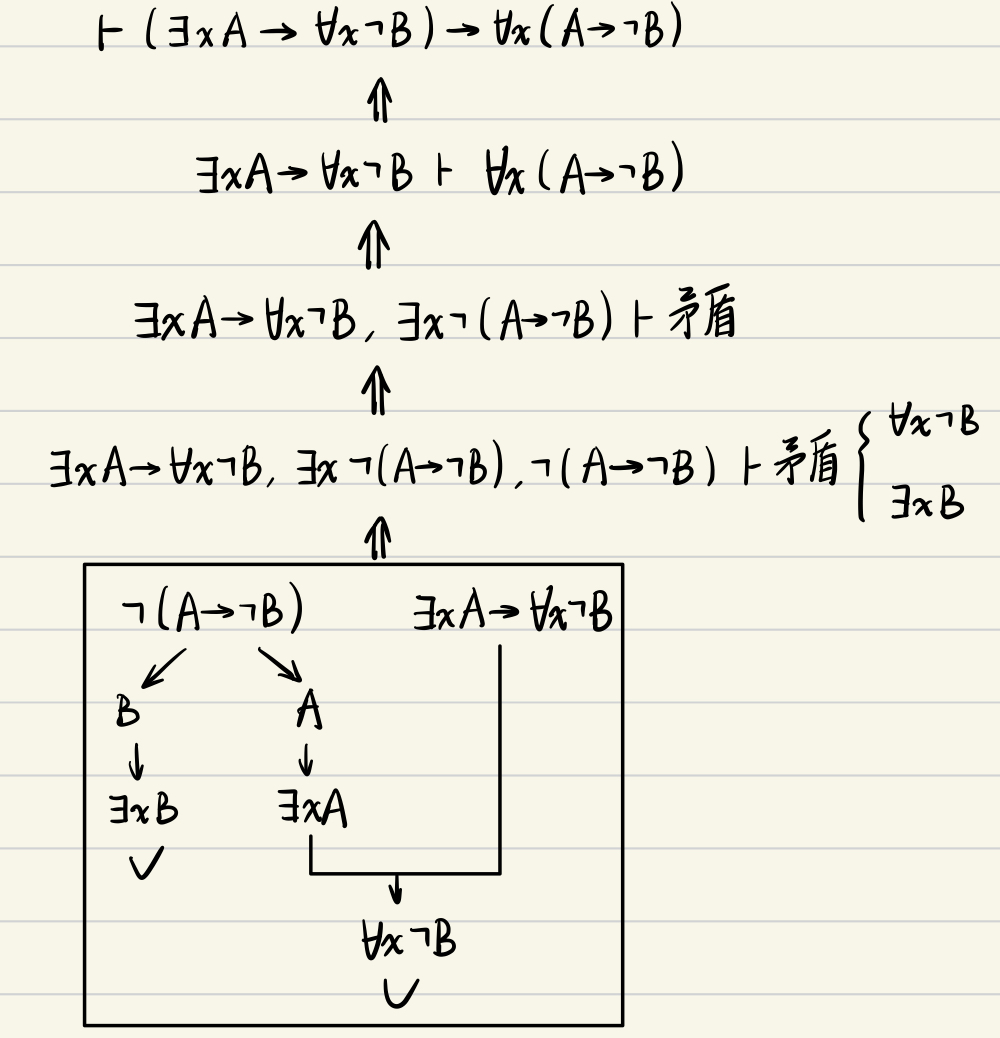 ⊢ (∃xA → ∀x¬B) → ∀x(A→¬B)
⇑
∃xA → ∀x¬B ⊢ ∀x(A→¬B)
⇑
∃xA → ∀x¬B, ∃x¬(A→¬B) ⊢ 矛盾
⇑
∃xA → ∀x¬B, ∃x¬(A→¬B), ¬(A→¬B) ⊢ 矛盾 {
∀x¬B
∃xB
⇑
¬(A→¬B)
∃xA → ∀x¬B
↙ ↘
B
A
↓ ↓
∃xB
∃xA
✓
↓
∀x¬B
✓